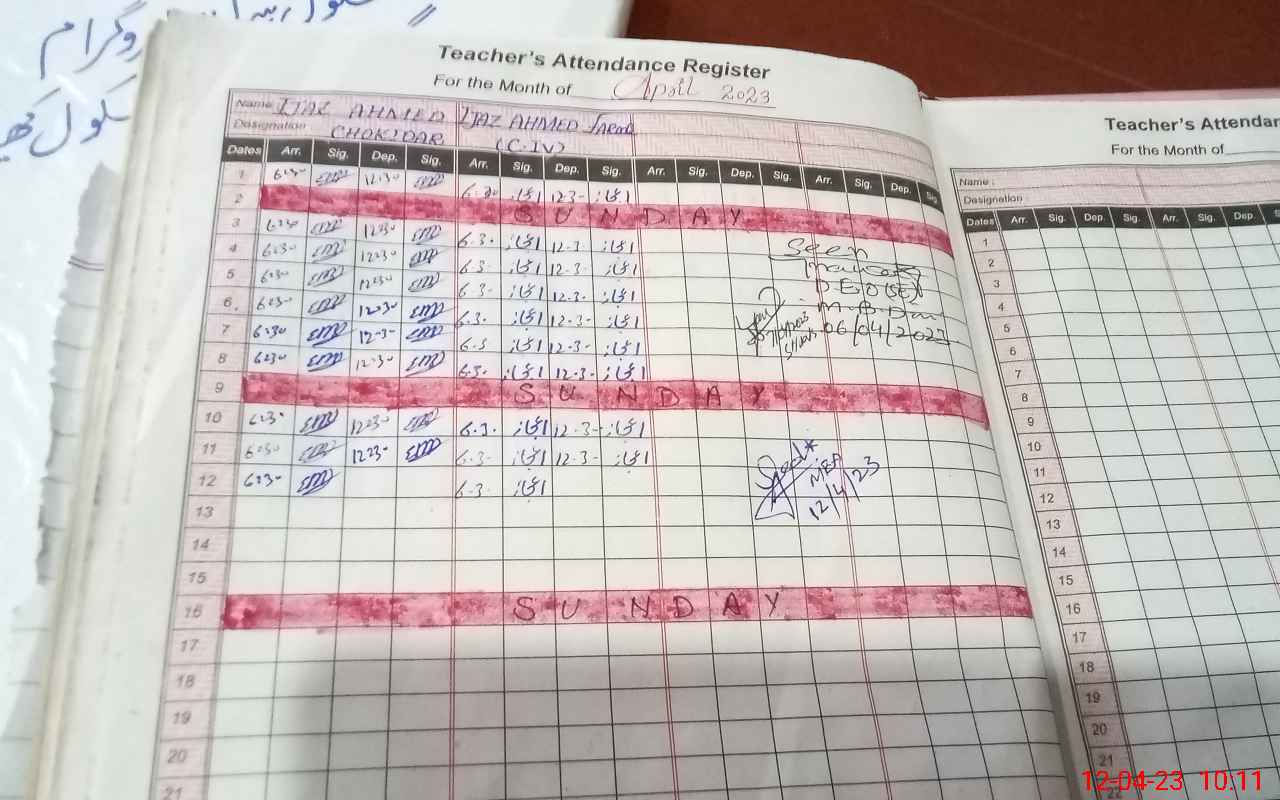 گرام
سکول
Teacher's Attendance Register
For the Month of April 2023
Name: IJAZ AHMED IJAZ AHMED
Designation: CHOKIDAR (C.IV)
Dates Arr. Sig. Dep. Sig. Arr. Sig. Dep. Sig. Arr. Sig. Dep. Sig. Arr. Sig. Dep. Sig.
1 6:30 12:30 6.30 اعجاز 12-3- اعجاز
2 SUNDAY
3 6:30 12:30 6.3. اعجاز 12-3- اعجاز
4 6:30 12:30 6.3- اعجاز 12-3- اعجاز
5 6:30 12:30 6.3- اعجاز 12-3- اعجاز
6 6:30 12:30 6.3- اعجاز 12-3- اعجاز
7 6:30 12-3- 6.3 اعجاز 12-3- اعجاز
8 6:30 12:30 6.3. اعجاز 12-3- اعجاز
9 SUNDAY
10 6:30 12:30 6.3. اعجاز 12-3- اعجاز
11 6:30 12:30 6.3- اعجاز 12-3- اعجاز
12 6:30 6.3- اعجاز
13
14
15
16 SUNDAY
17
18
19
20
21
Seen
D.E.O (SE)
M.B.Din
06/04/2023
MEA
12/4/23
Teacher's Attendar
For the Month of
Name :
Designation :
Dates Arr. Sig. Dep. Sig. Arr. Sig. Dep.
1
2
3
4
5
6
7
8
9
10
11
12
13
14
15
16
17
18
19
20
21
22
12-04-23 10:11